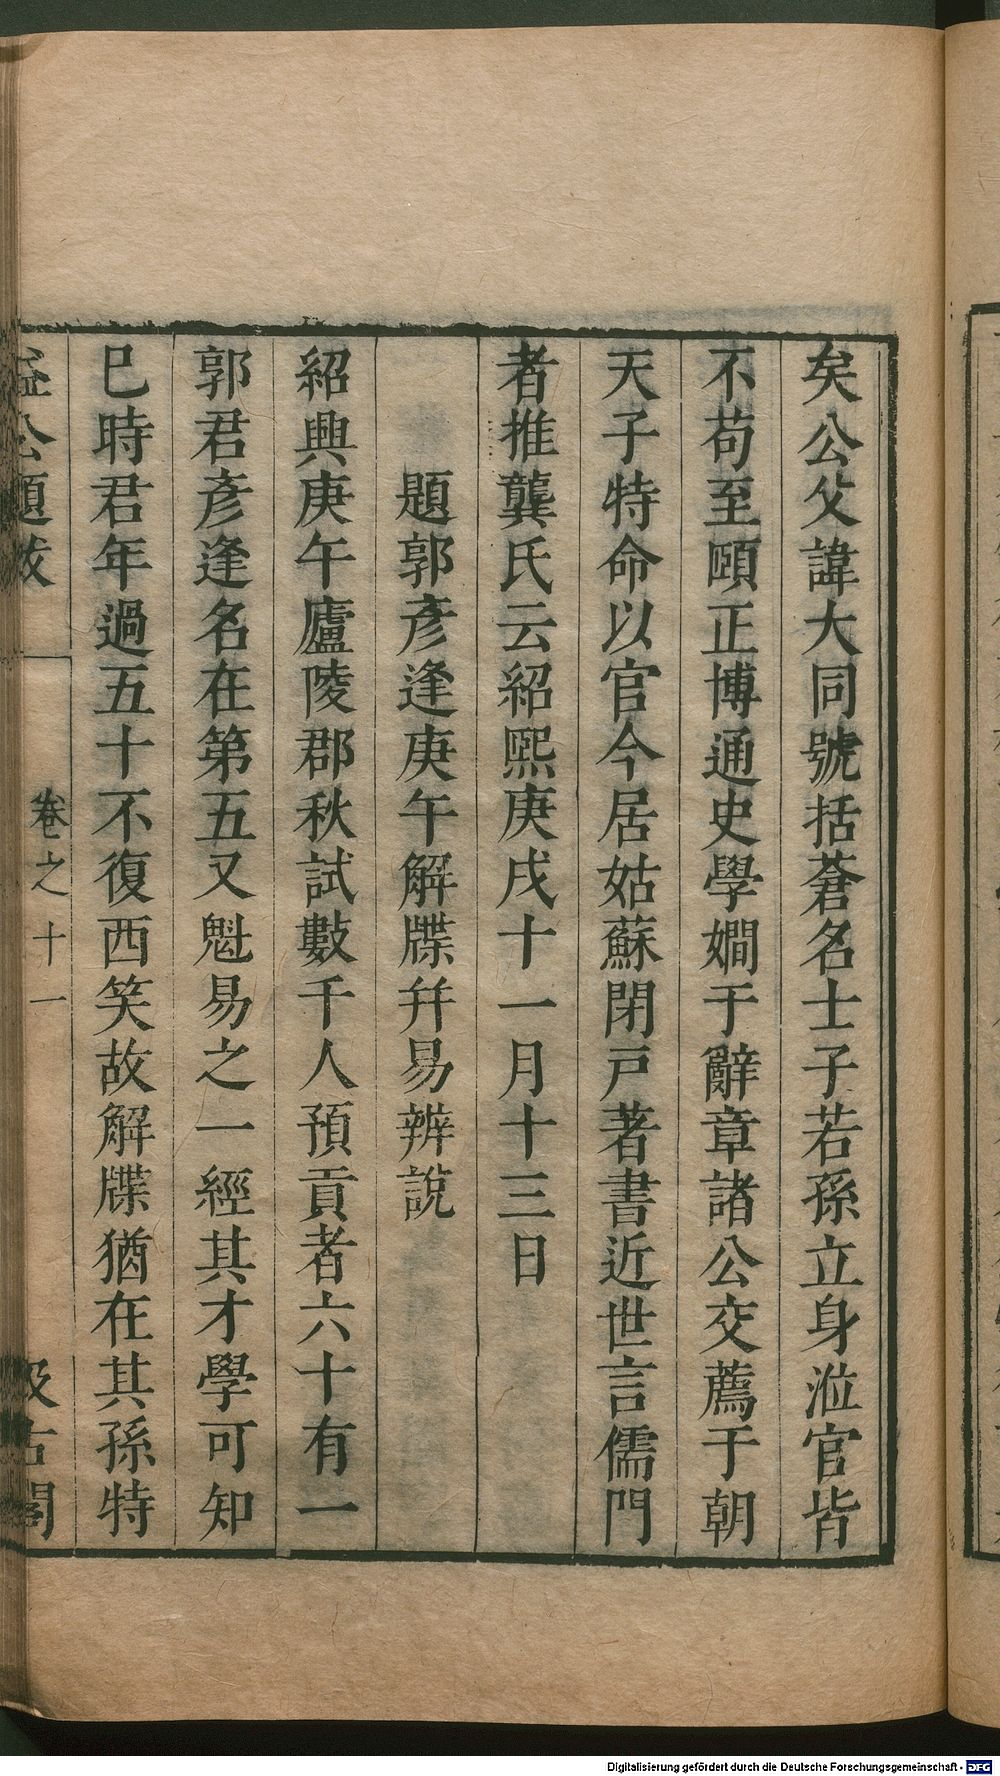 矣公父諱大同號括蒼名士子若孫立身涖官皆
不苟至頤正博通史學嫺于辭章諸公交薦于朝
天子特命以官今居姑蘇閉戸著書近世言儒門
者推龔氏云紹熙庚戌十一月十三日
題郭彥逢庚午解牒幷易辨說
紹興庚午廬陵郡秋試數千人預貢者六十有一
郭君彥逢名在第五又魁易之一經其才學可知
巳時君年過五十不復西笑故解牒猶在其孫特
益公題跋
卷之十一
汲古閣
Digitalisierung gefördert durch die Deutsche Forschungsgemeinschaft - DFG